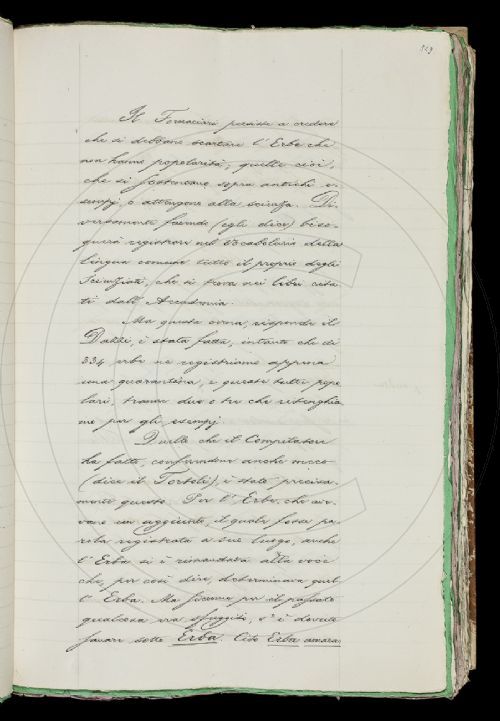 129
Il Fornaciari persiste a credere
che si debbano scartare l'Erbe che
non hanno popolarità, quelle cioè,
che si fondano sopra antichi e-
sempj, o attengono alla scienza. Di-
versamente facendo (egli dice) biso-
gnerà registrare nel Vocabolario della
lingua comune tutto il proprio degli
Scienziati, che si trova nei libri cita-
ti dall'Accademia.
Ma questa cerna, risponde il
Dalbi, è stata fatta, intanto che di
334 erbe ne registriamo appena
una quarantina, e queste tutte popo-
lari, tranne due o tre che ritenghia-
mo per gli esempj.
Quello che il Compilatore
ha fatto, confermdone anche meco
(dice il Tortoli), è stato precisa-
mente questo. Per l'Erbe, che ave-
vano un aggiunto, il quale fosse pa-
rola registrata a suo luogo, anche
l'Erba si è rimandata alla voce
che, per così dire, determinava quel-
l'Erba. Ma siccome per il passato
qualcosa era sfuggito, s'è dovuto
fare sotto Erba. Cito Erba amara